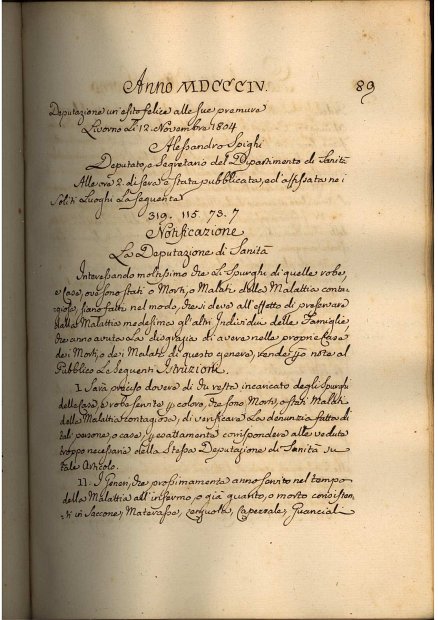 Anno MDCCCIV. 89
Deputazione un'esito felice alle sue premure
Livorno Li 12. Novembre 1804
Alessandro Spighi
Deputato, e Segretario del Dipartimento di Sanità
Alle ore 2. di sera è stata pubblicata, ed affissata nei
Soliti Luoghi La seguente
319. 115. 73. 7
Notificazione
La Deputazione di Sanità
Interessando moltissimo che Li Spurghi di quelle robe,
e Case, ove sono stati o Morti, o Malati della Malattia conta
giosa, siano fatti nel modo, che si deve all'effetto di preservare
dalla Malattia medesima gl'altri Individui delle Famiglie
che anno avuta La disgrazia di avere nella propria Casa
dei Morti, o dei Malati di questo genere, rende note al
Pubblico Le seguenti Istruzioni.
I. Sarà preciso dovere di chi resta incaricato degli Spurghi
delle Case, e robe servite coloro, che sono Morti, o stati Malati
della Malattia contagiosa, di verificare La denunzia fatta di
tali persone, o case, esattamente corrispondere alle vedute
troppo necessarie della Stessa Deputazione di Sanità su
tale Articolo.
II. I Generi, che prossimamente anno servito nel tempo
della Malattia all'infermo, o già guarito, o morto consisten
ti in Saccone, Materassa, Lenzuola, Capezzale, Guanciali